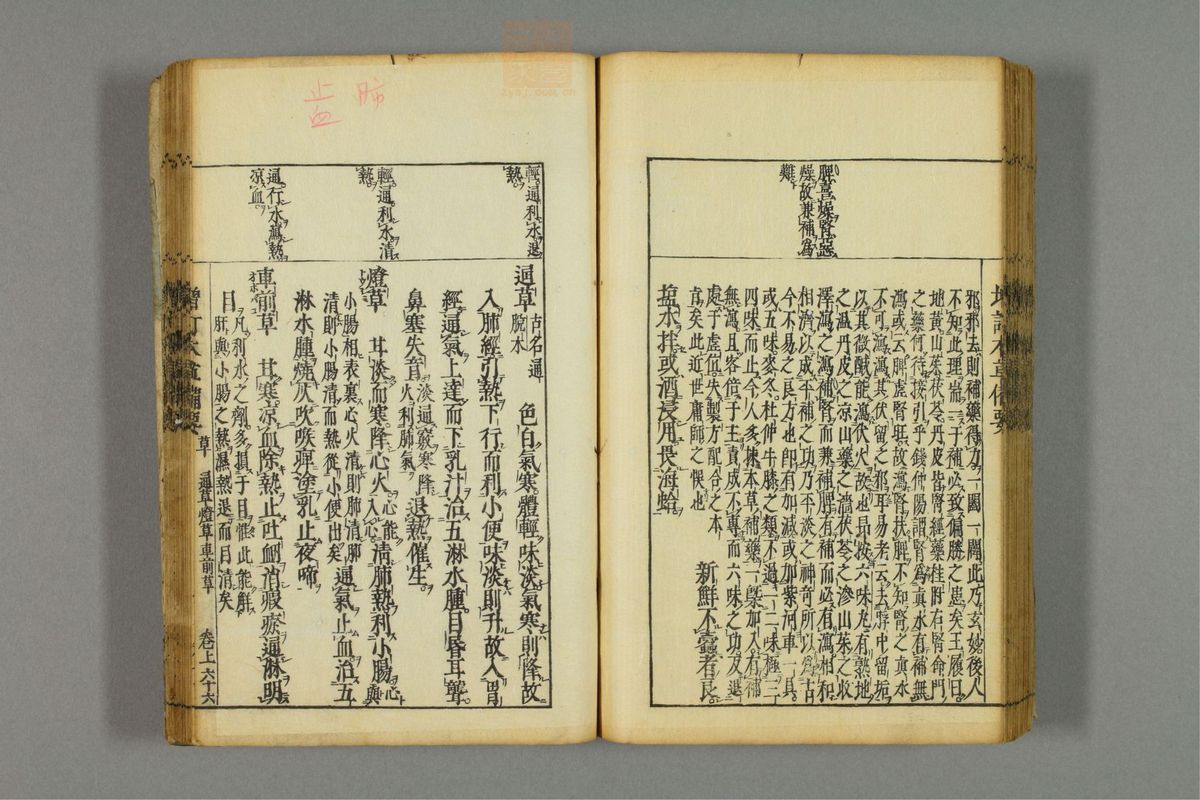 脾喜燥腎惡
燥故兼補為
難
邪邪去則補藥得力一闢一闔此乃玄妙後人
不知此理耑一于補必致偏勝之患矣王履曰
地黃山茱茯苓丹皮皆腎經藥桂附右腎命門
之藥何待接引乎錢仲陽謂腎為真水有補無
瀉或云脾虛腎旺故瀉腎扶脾不知腎之真水
不可瀉瀉其伏留之邪耳易老云去脬中留垢
以其微鹹能瀉伏火故也昂按六味丸有熟地
之溫丹皮之涼山藥之濇茯苓之滲山茱之收
澤瀉之瀉補腎而兼補脾有補而必有瀉相和
相濟以成平補之功乃平淡之神奇所以為古
今不易之良方也即有加減或加紫河車一具
或五味麥冬杜仲牛膝之類不過一二味極三
四味而止今人多揀本草補藥一槩加入有補
無瀉且客倍于主責成不專而六味之功反退
處于虛位失製方配合之本
旨矣此近世庸師之悞也
新鮮不蠹者良
鹽水拌或酒浸用畏海蛤
增訂本草備要
肺
止血
輕通利水退
熱
輕通利水清
熱
通行水瀉熱
涼血
通草
古名通
脫木
色白氣寒體輕味淡氣寒則降故
入肺經引熱下行而利小便味淡則升故入胃
經通氣上達而下乳汁治五淋水腫目昏耳聾
鼻塞失音
淡通竅寒降
火利肺氣
退熱催生
燈草
甘淡而寒降心火
心能
入心
清肺熱利小腸
心與
小腸相表裏心火清則肺清肺
清則小腸清而熱從小便出矣
通氣止血治五
淋水腫燒灰吹喉痹塗乳止夜啼
車前草
甘寒涼血除熱止吐衄消瘕瘀通淋明
目
凡利水之劑多損于目惟此能解
肝與小腸之熱濕熱退而目清矣
增訂本草備要
草
通草燈草車前草
卷上六十六